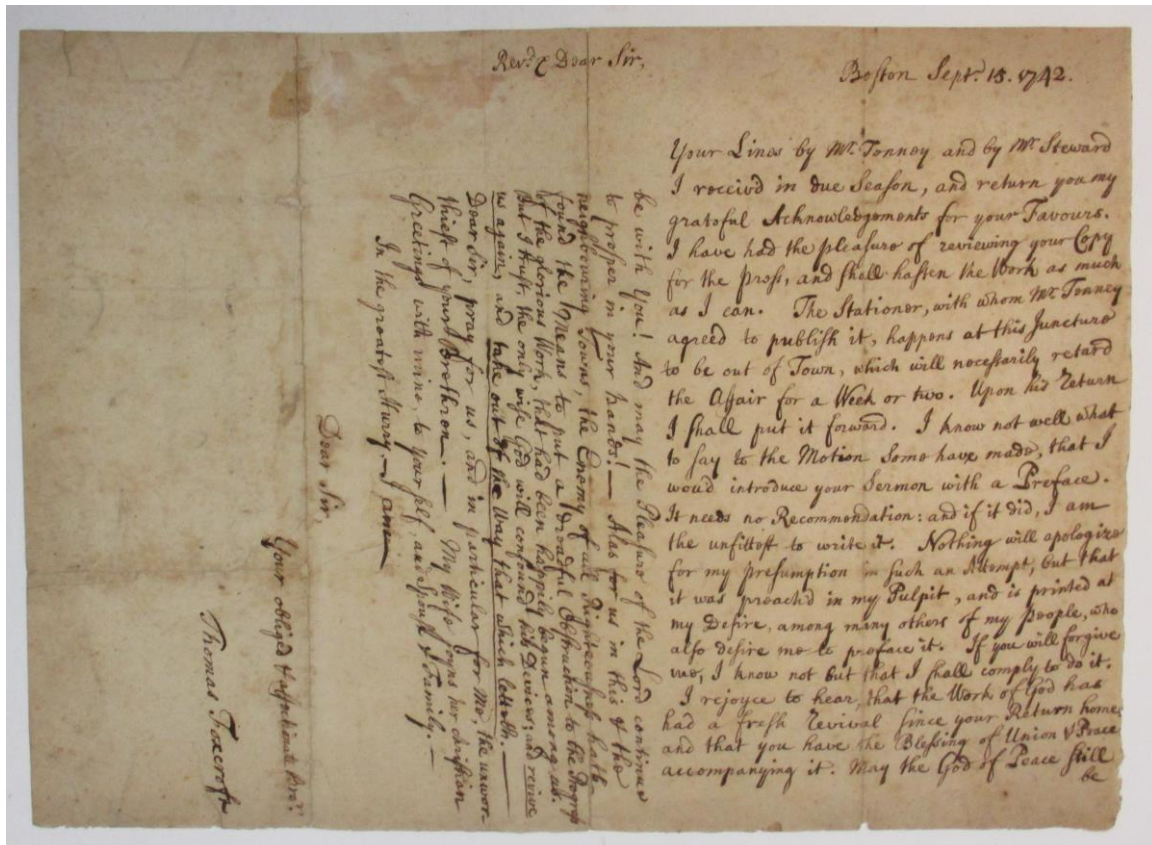 Boston Septr. 15. 1742.
Revd. & Dear Sir,
Your Lines by Mr. Tenney and by Mr. Steward
I receivd in due Season, and return you my
grateful Acknowledgements for your Favours.
I have had the pleasure of reviewing your Copy
for the press, and shall hasten the Work as much
as I can. The Stationer, with whom Mr. Tenney
agreed to publish it, happens at this Juncture
to be out of Town, which will necessarily retard
the Affair for a Week or two. Upon his Return
I shall put it forward. I know not well what
to say to the Motion some have made, that I
woud introduce your Sermon with a Preface.
It needs no Recommendation: and if it did, I am
the unfittest to write it. Nothing will apologize
for my presumption in such an Attempt, but that
it was preach'd in my Pulpit, and is printed at
my Desire, among many others of my people, who
also desire me to preface it. If you will forgive
me, I know not but that I shall comply to do it.
I rejoyce to hear, that the Work of God has
had a fresh Revival since your Return home;
and that you have the Blessing of Union & Peace
accompanying it. May the God of Peace still
be
be with You! And may the Pleasure of the Lord continue
to prosper in your hands! — Alas for us in this & the
neighbouring Towns, the Enemy of all Righteousness hath
found the Means to put a dreadful Obstruction to the Progress
of the glorious Work, that had been happily begun among us.
But I trust, the only wise God will confound his Devices; and revive
us again, and take out of the Way that which letteth. —
Dear Sir, pray for us, and in particular for Me, the unwor-
thiest of your Brethren. — My Wife joyns her christian
Greetings with mine, to your self, and Spouse & Family. —
In the greatest Hurry. — I am —
Dear Sir,
Your obliged & affectionate Bror.
Thomas Foxcroft